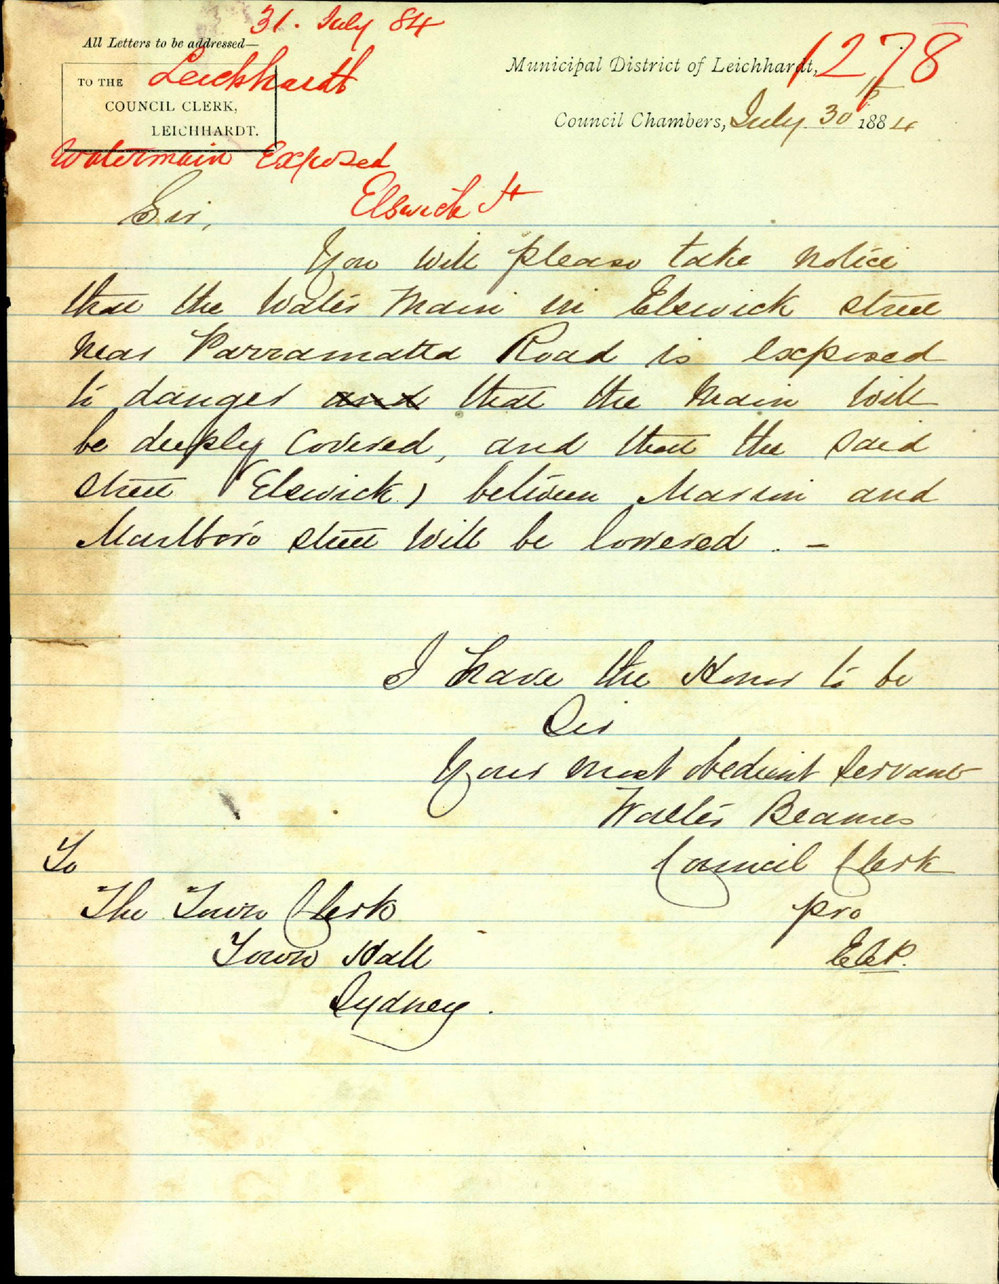 31. July 84
All Letters to be addressed—
Leichhardt
TO THE
COUNCIL CLERK,
LEICHHARDT.
Municipal District of Leichhardt,
1278
Council Chambers, July 30 1884
Watermain Exposed
Elswick St
Sir,
You will please take notice
that the Water Main in Elswick street
near Parramatta Road is exposed
to danger and that the Main will
be deeply covered, and that the said
street (Elswick) between Marion and
Marlboro street will be lowered. –
I have the Honor to be
Sir
Your most obedient servant
Walter Beames
Council Clerk
pro
To
The Town Clerk
Town Hall
Sydney.